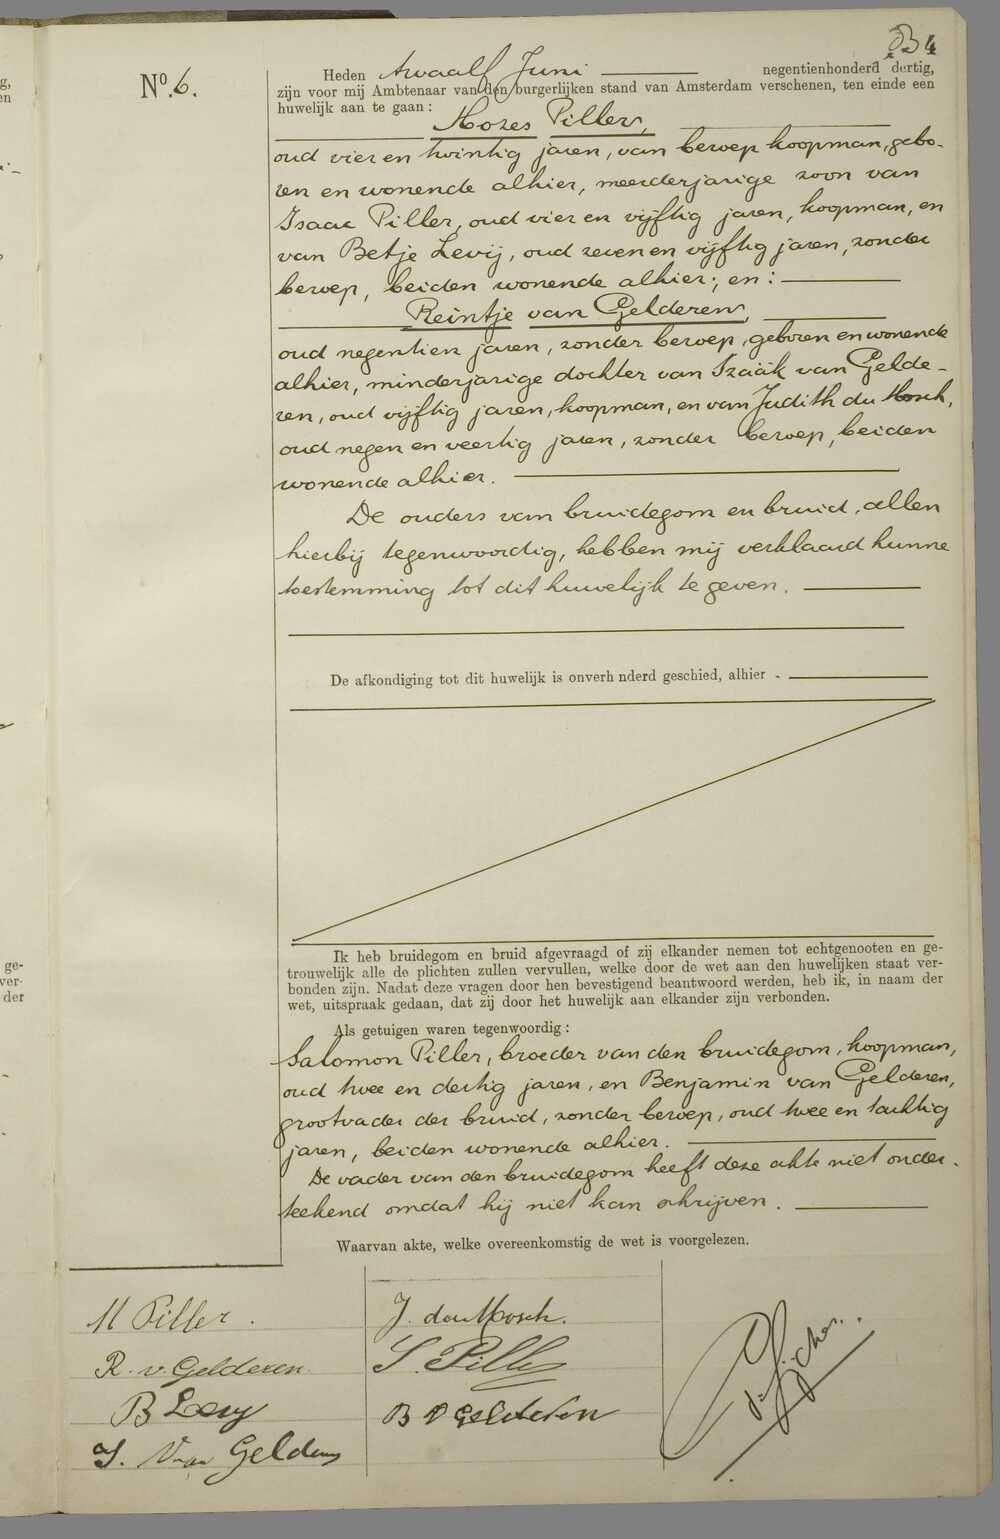 B 4
Nº. 6.
Heden twaalf Juni negentienhonderd dertig,
zijn voor mij Ambtenaar van den burgerlijken stand van Amsterdam verschenen, ten einde een
huwelijk aan te gaan:
Mozes Piller,
oud vier en twintig jaren, van beroep koopman, gebo-
ren en wonende alhier, meerderjarige zoon van
Isaac Piller, oud vier en vijftig jaren, koopman, en
van Betje Levij, oud zeven en vijftig jaren, zonder
beroep, beiden wonende alhier; en:
Reintje van Gelderen,
oud negentien jaren, zonder beroep, geboren en wonende
alhier, minderjarige dochter van Izaäk van Gelde-
ren, oud vijftig jaren, koopman, en van Judith du Mosch,
oud negen en veertig jaren, zonder beroep, beiden
wonende alhier.
De ouders van bruidegom en bruid, allen
hierbij tegenwoordig, hebben mij verklaard hunne
toestemming tot dit huwelijk te geven.
De afkondiging tot dit huwelijk is onverh nderd geschied, alhier.
Ik heb bruidegom en bruid afgevraagd of zij elkander nemen tot echtgenooten en ge-
trouwelijk alle de plichten zullen vervullen, welke door de wet aan den huwelijken staat ver-
bonden zijn. Nadat deze vragen door hen bevestigend beantwoord werden, heb ik, in naam der
wet, uitspraak gedaan, dat zij door het huwelijk aan elkander zijn verbonden.
Als getuigen waren tegenwoordig:
Salomon Piller, broeder van den bruidegom, koopman,
oud twee en dertig jaren, en Benjamin van Gelderen,
grootvader der bruid, zonder beroep, oud twee en tachtig
jaren, beiden wonende alhier.
De vader van den bruidegom heeft deze akte niet onder-
teekend omdat hij niet kan schrijven.
Waarvan akte, welke overeenkomstig de wet is voorgelezen.
M Piller.
R. v. Gelderen
B Levy
I. van Gelderen
J. du Mosch.
S. Piller
B v Gelderen
g,
en
ge-
ver-
der